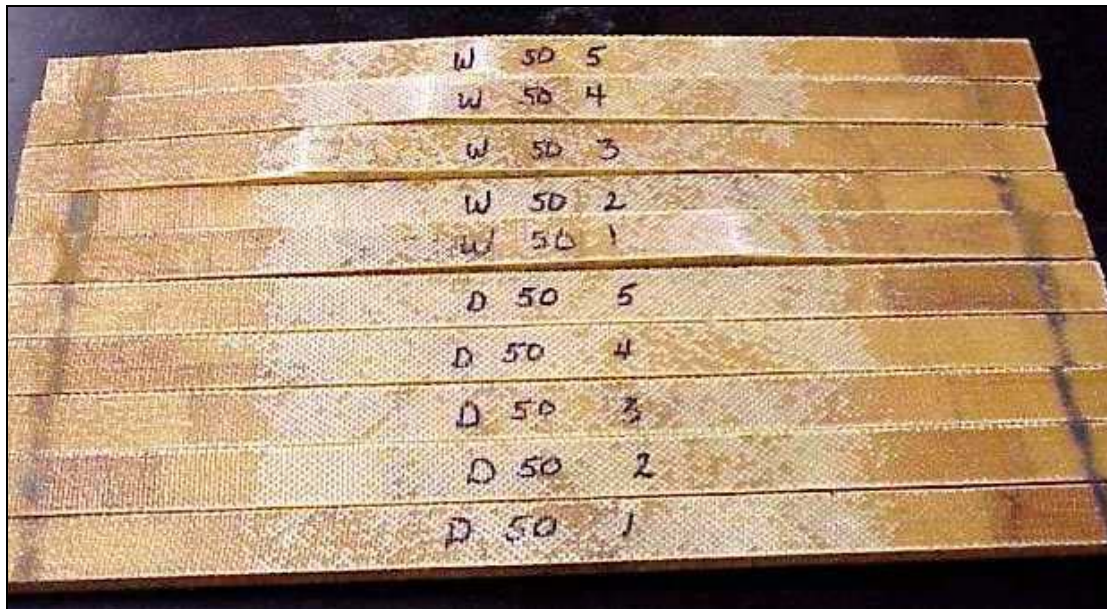 W 50 5
W 50 4
W 50 3
W 50 2
W 50 1
D 50 5
D 50 4
D 50 3
D 50 2
D 50 1